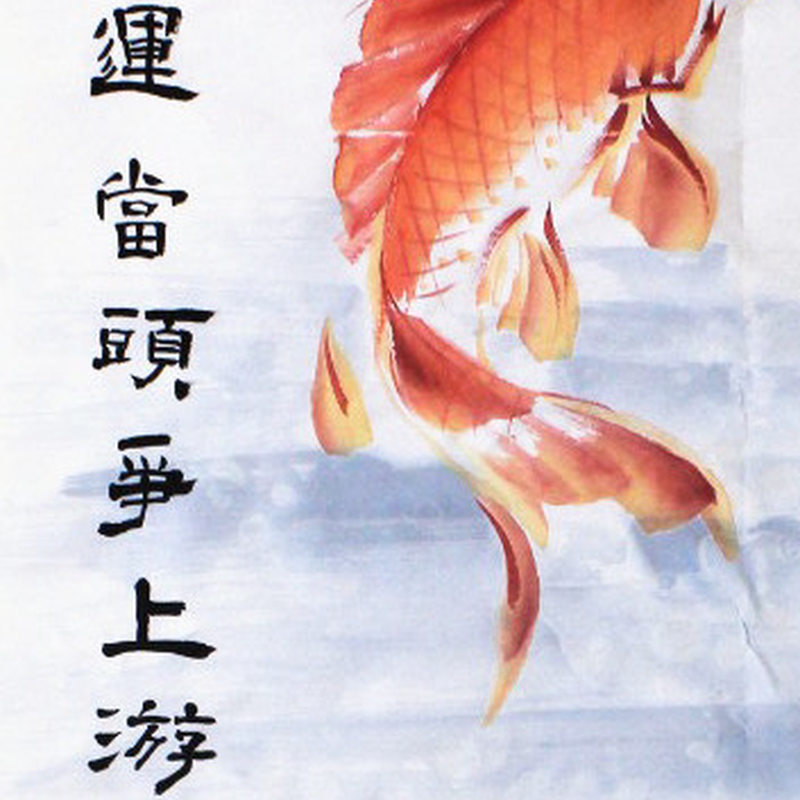 運當頭爭上游